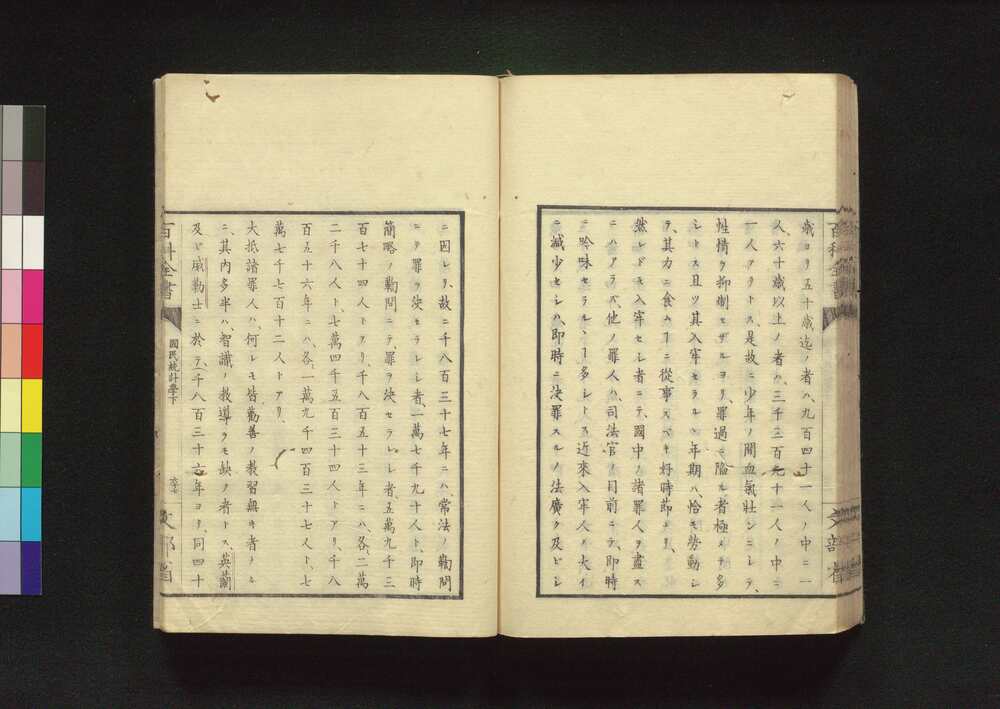 歳ヨリ五十歳迄ノ者ハ、九百四十一人ノ中ニ一
人、六十歳以上ノ者ハ、三千三百九十一人ノ中ニ
一人アリトス、是故ニ少年ノ間血氣壮ンニシテ、
性情ヲ抑制セザルヨリ、罪過ニ陥ル者極メテ多
シトス且ツ其入牢セラルヽ年期ハ、恰モ勞動シ
テ、其力ニ食ムヿニ從事スベキ好時節ナリ、
然レドモ入牢セシ者ニテ、國中ノ諸罪人ヲ盡ス
ニハアラズ、他ノ罪人ハ、司法官ノ目前ニテ、即時
ニ吟味セラルヽヿ多シトス近來入牢人ノ大イ
ニ減少セシハ、即時ニ決罪スルノ法廣ク及ビシ
ニ因レリ、故ニ千八百三十七年ニハ、常法ノ鞫問
ニテ罪ヲ決セラレシ者、一萬七千九十人ト、即時
簡略ノ鞫問ニテ、罪ヲ決セラレシ者、五萬九千三
百七十四人トアリ、千八百五十三年ニハ、各、二萬
二千八人ト、七萬四千五百三十四人トアリ、千八
百五十六年ニハ、各、一萬九千四百三十七人ト、七
萬七千七百十二人トアリ、
大抵諸罪人ハ、何レモ皆勸善ノ教習無キ者ナル
ニ、其内多半ハ、智識ノ教導ヲモ缺ク者トス、英蘭
及ビ威勒士ニ於テ、千八百三十六年ヨリ、同四十
百科全書
國民統計學下
文部省